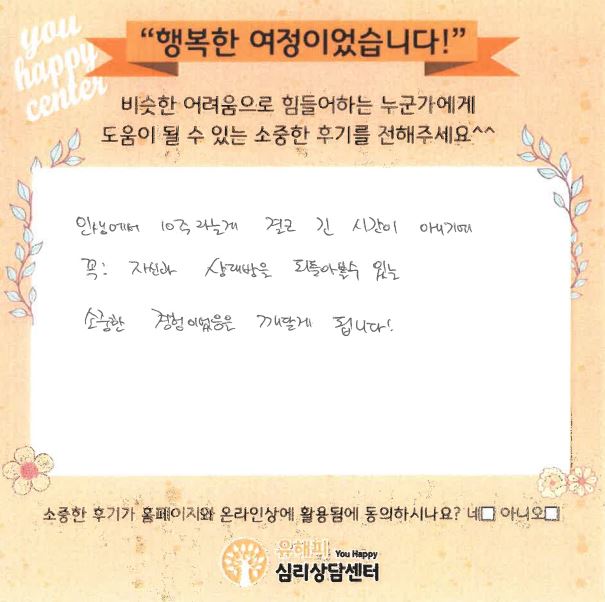 you
happy
center
“행복한 여정이었습니다!”
비슷한 어려움으로 힘들어하는 누군가에게
도움이 될 수 있는 소중한 후기를 전해주세요^^
인생에서 10주라는게 결코 긴 시간이 아니기에
꼭! 자신과 상대방을 되돌아볼수 있는
소중한 경험이었음을 깨닫게 됩니다!
소중한 후기가 홈페이지와 온라인상에 활용됨에 동의하시나요? 네□ 아니오□
유해피 You Happy
심리상담센터